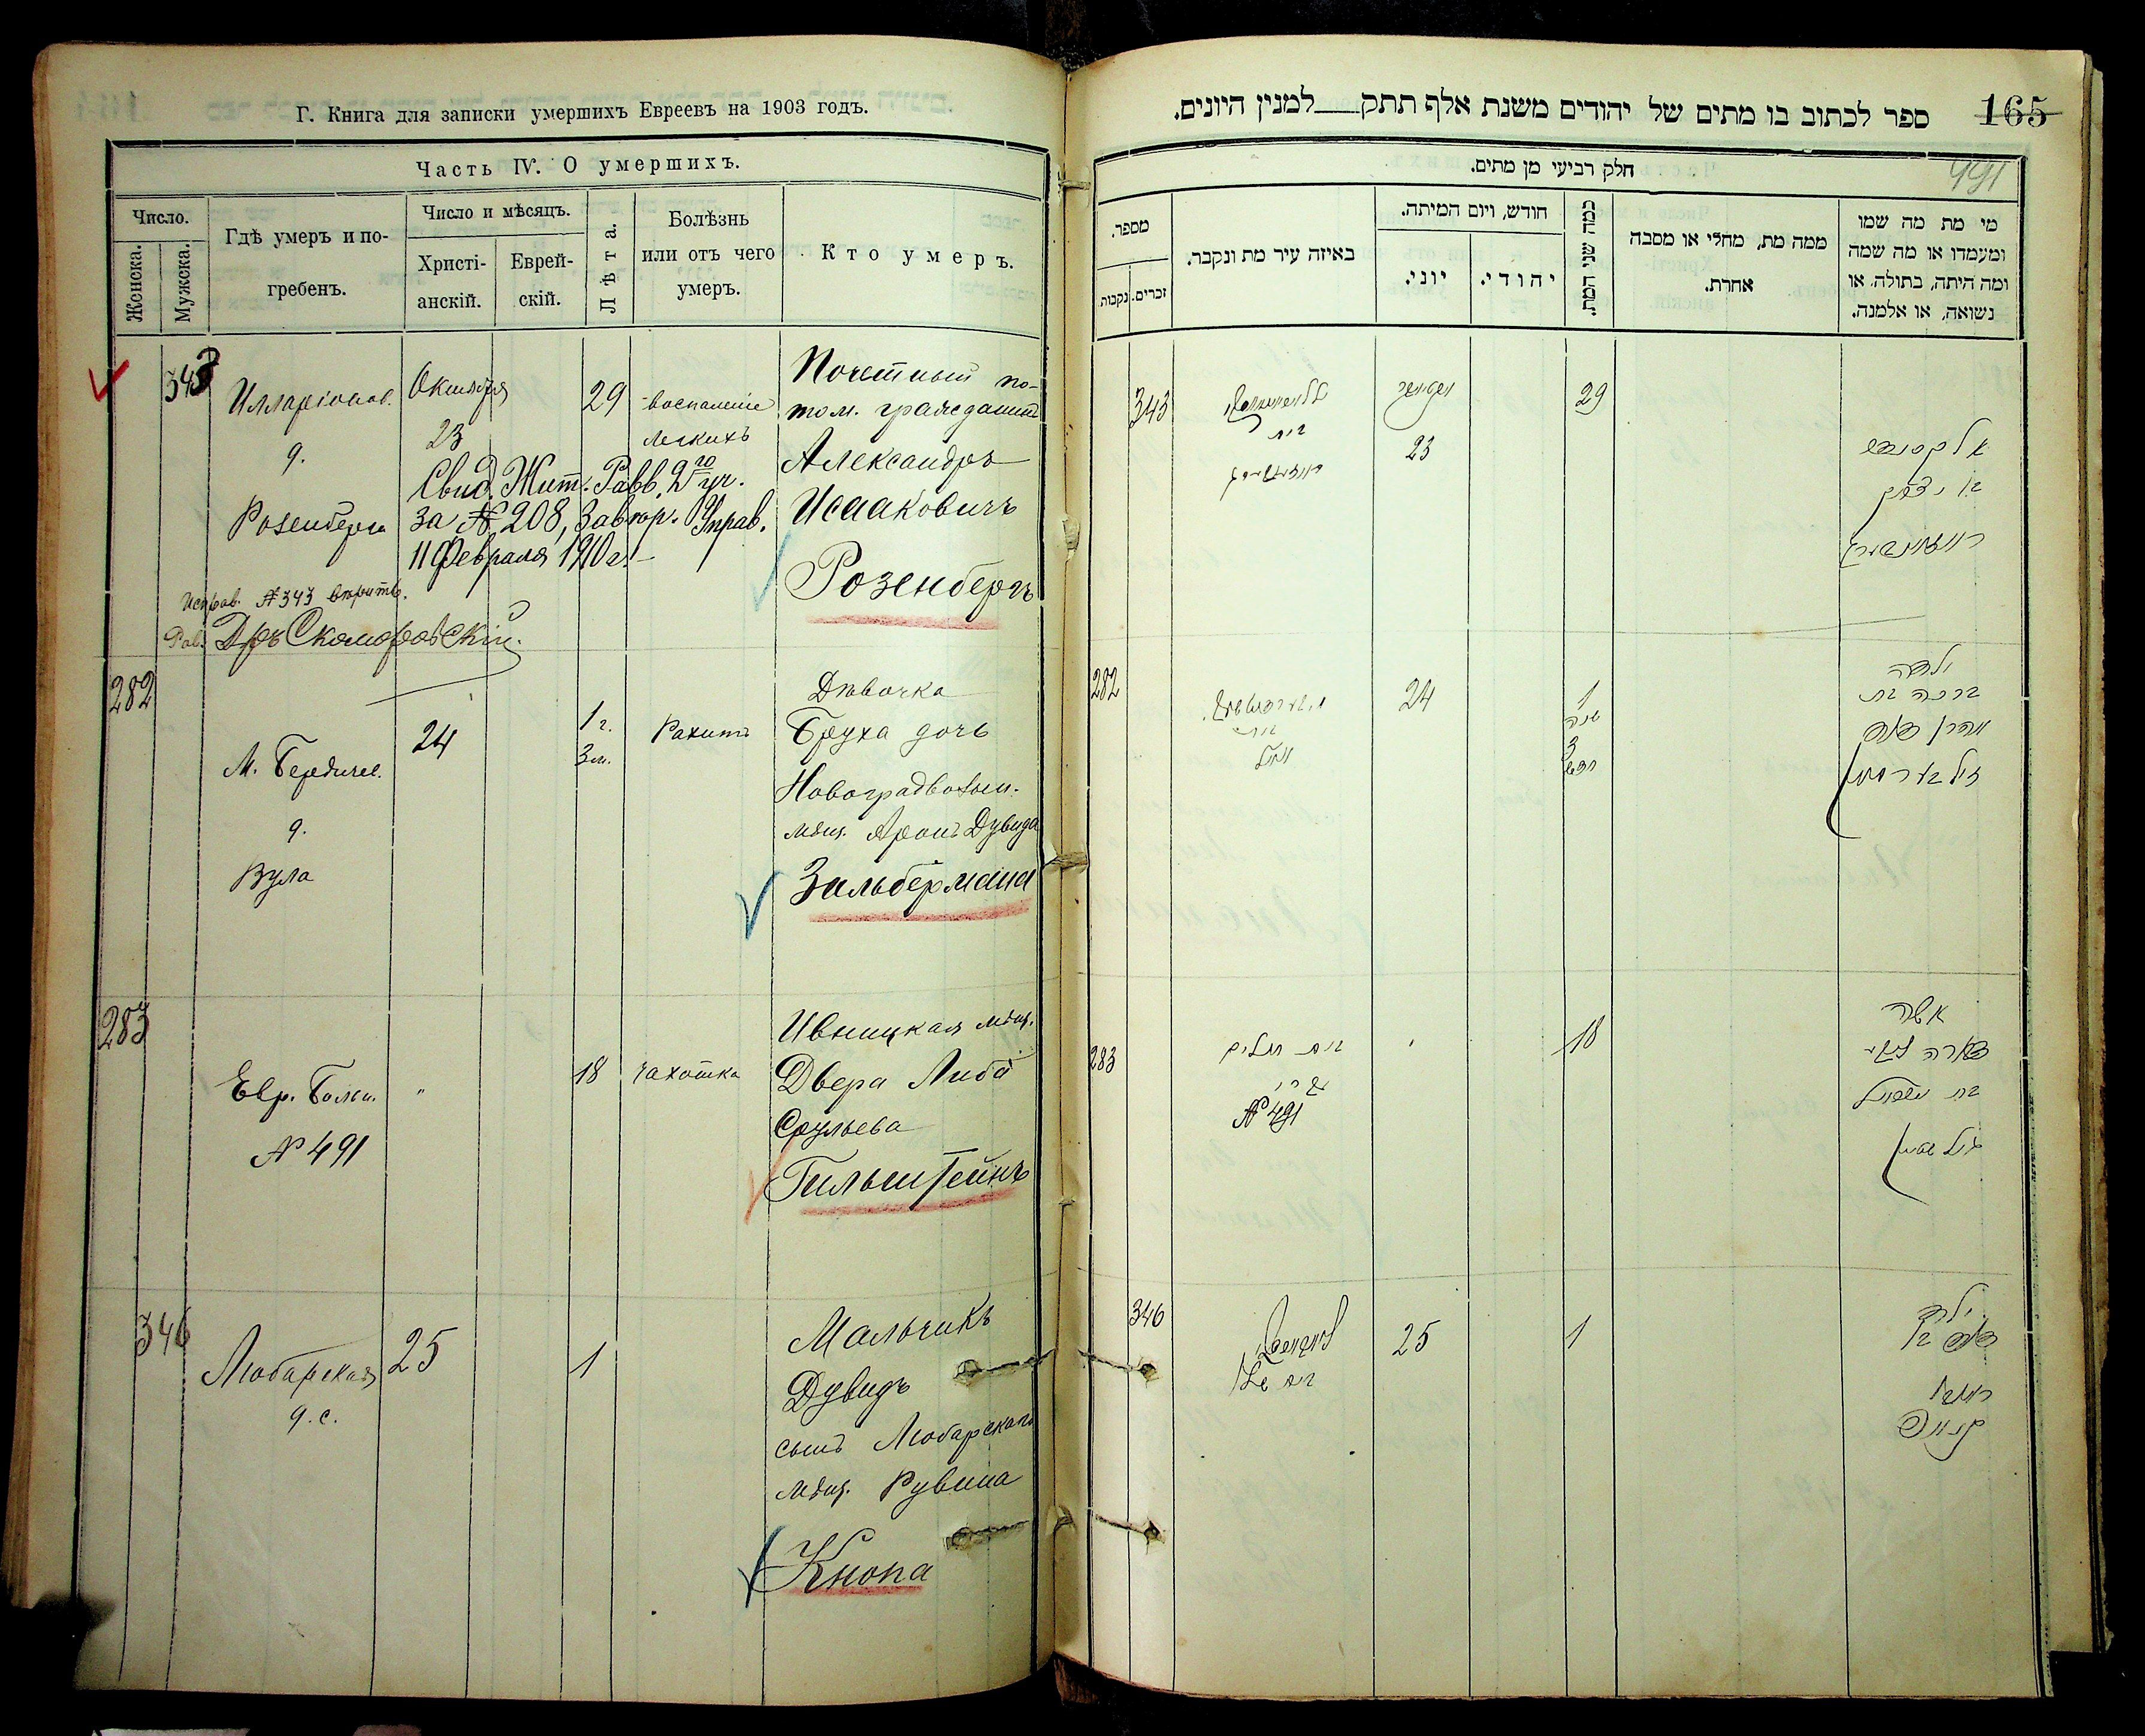 Г. Книга для записки умершихъ Евреевъ на 1903 годъ.
Часть IV. О умершихъ.
Число.
Женска.
Мужска.
Гдѣ умеръ и погребенъ.
Число и мѣсяцъ.
Христіанскій.
Еврейскій.
Лѣта.
Болѣзнь
или отъ чего
умеръ.
Кто умеръ.
343
Илларіонов.
д.
Розенберга
Октября
23
29
воспаленіе
легкихъ
Почетный по-
том. гражданинъ
Александръ
Исааковичъ
Розенбергъ
Свид. Жит. Равв. 2го уч.
за № 208, Завѣр. Управ.
11 Февраля 1910 г.
Исправ. № 343 вѣрить.
Рав. Дръ Скоморовскій.
282
М. Бердичев.
д.
Вула
24
1 г.
3 м.
Рахитъ
Дѣвочка
Бруха дочь
Новоградволын.
мѣщ. Арона Дувида
Зильбермана
283
Евр. Больн.
№ 491
"
18
чахотка
Ивницкая мѣщ.
Двера Либа
Срульева
Гильштейнъ
346
Любарская
д. с.
25
1
Мальчикъ
Дувидъ
сынъ Любарскаго
мѣщ. Рувина
Кнопа
ספר לכתוב בו מתים של יהודים משנת אלף תתק למנין היונים.
165
חלק רביעי מן מתים.
491
מספר.
נקבות
זכרים.
באיזה עיר מת ונקבר.
חודש, ויום המיתה.
יוני.
יהודי.
כמה שני המת.
ממה מת, מחלי או מסבה
אחרת.
מי מת מה שמו
ומעמדו או מה שמה
ומה היתה, בתולה או
נשואה, או אלמנה.
343
23
29
282
24
1
שנה
3
חדש
ילדה
ברכה בת
אהרן דוד
זילבערמאן
283
בית חולים
№ 491
18
אשה
דווירה ליבע
346
25
1
ילד
דוד בן
ראובן
קנאפ